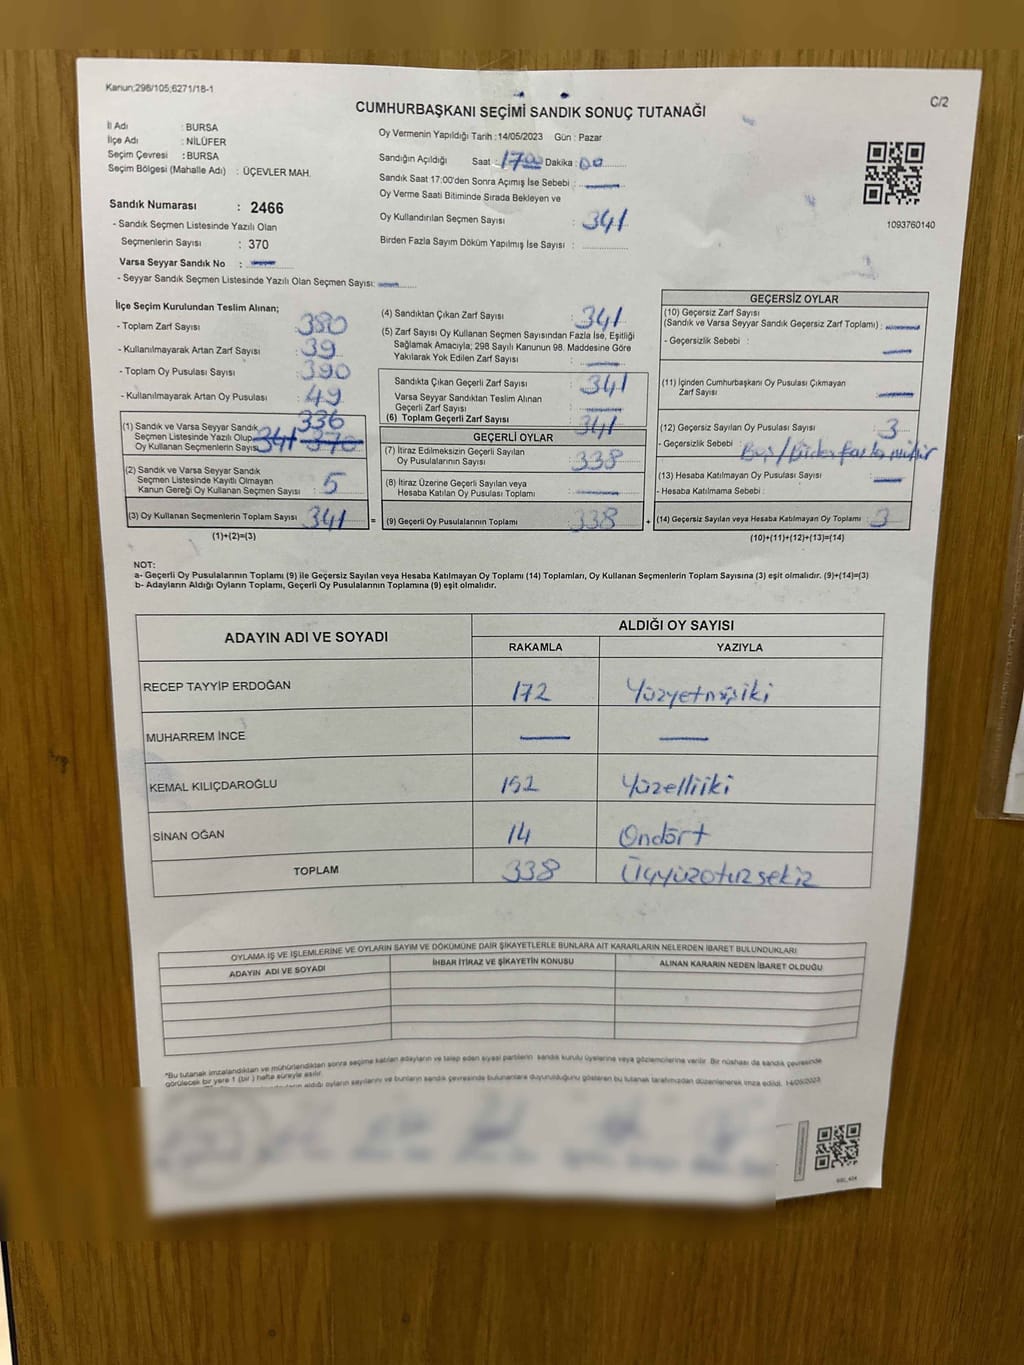 Kanun;298/105;6271/18-1
C/2
CUMHURBAŞKANI SEÇİMİ SANDIK SONUÇ TUTANAĞI
İl Adı : BURSA
İlçe Adı : NİLÜFER
Seçim Çevresi : BURSA
Seçim Bölgesi (Mahalle Adı) : ÜÇEVLER MAH.
Sandık Numarası : 2466
- Sandık Seçmen Listesinde Yazılı Olan
Seçmenlerin Sayısı : 370
Varsa Seyyar Sandık No :
- Seyyar Sandık Seçmen Listesinde Yazılı Olan Seçmen Sayısı:
Oy Vermenin Yapıldığı Tarih :14/05/2023 Gün : Pazar
Sandığın Açıldığı Saat : 17:00 Dakika : 00
Sandık Saat 17:00'den Sonra Açımış İse Sebebi :
Oy Verme Saati Bitiminde Sırada Bekleyen ve
Oy Kullandırılan Seçmen Sayısı : 341
Birden Fazla Sayım Döküm Yapılmış İse Sayısı :
1093760140
İlçe Seçim Kurulundan Teslim Alınan;
- Toplam Zarf Sayısı : 380
- Kullanılmayarak Artan Zarf Sayısı : 39
- Toplam Oy Pusulası Sayısı : 390
- Kullanılmayarak Artan Oy Pusulası : 49
336
(1) Sandık ve Varsa Seyyar Sandık
Seçmen Listesinde Yazılı Olup
Oy Kullanan Seçmenlerin Sayısı 341 370
(2) Sandık ve Varsa Seyyar Sandık
Seçmen Listesinde Kayıtlı Olmayan
Kanun Gereği Oy Kullanan Seçmen Sayısı : 5
(3) Oy Kullanan Seçmenlerin Toplam Sayısı : 341 =
(1)+(2)=(3)
(4) Sandıktan Çıkan Zarf Sayısı : 341
(5) Zarf Sayısı Oy Kullanan Seçmen Sayısından Fazla İse, Eşitliği
Sağlamak Amacıyla; 298 Sayılı Kanunun 98. Maddesine Göre
Yakılarak Yok Edilen Zarf Sayısı :
Sandıkta Çıkan Geçerli Zarf Sayısı : 341
Varsa Seyyar Sandıktan Teslim Alınan
Geçerli Zarf Sayısı :
(6) Toplam Geçerli Zarf Sayısı : 341
GEÇERLİ OYLAR
(7) İtiraz Edilmeksizin Geçerli Sayılan
Oy Pusulalarının Sayısı : 338
(8) İtiraz Üzerine Geçerli Sayılan veya
Hesaba Katılan Oy Pusulası Toplamı :
(9) Geçerli Oy Pusulalarının Toplamı : 338 +
GEÇERSİZ OYLAR
(10) Geçersiz Zarf Sayısı
(Sandık ve Varsa Seyyar Sandık Geçersiz Zarf Toplamı) :
- Geçersizlik Sebebi :
(11) İçinden Cumhurbaşkanı Oy Pusulası Çıkmayan
Zarf Sayısı :
(12) Geçersiz Sayılan Oy Pusulası Sayısı : 3
- Geçersizlik Sebebi : Boş/Birden fazla mühür
(13) Hesaba Katılmayan Oy Pusulası Sayısı :
- Hesaba Katılmama Sebebi :
(14) Geçersiz Sayılan veya Hesaba Katılmayan Oy Toplamı : 3
(10)+(11)+(12)+(13)=(14)
NOT:
a- Geçerli Oy Pusulalarının Toplamı (9) ile Geçersiz Sayılan veya Hesaba Katılmayan Oy Toplamı (14) Toplamları, Oy Kullanan Seçmenlerin Toplam Sayısına (3) eşit olmalıdır. (9)+(14)=(3)
b- Adayların Aldığı Oyların Toplamı, Geçerli Oy Pusulalarının Toplamına (9) eşit olmalıdır.
ADAYIN ADI VE SOYADI ALDIĞI OY SAYISI
RAKAMLA YAZIYLA
RECEP TAYYİP ERDOĞAN 172 Yüzyetmişiki
MUHARREM İNCE
KEMAL KILIÇDAROĞLU 152 Yüzelliiki
SİNAN OĞAN 14 Ondört
TOPLAM 338 Üçyüzotuzsekiz
OYLAMA İŞ VE İŞLEMLERİNE VE OYLARIN SAYIM VE DÖKÜMÜNE DAİR ŞİKAYETLERLE BUNLARA AİT KARARLARIN NELERDEN İBARET BULUNDUKLARI
ADAYIN ADI VE SOYADI İHBAR İTİRAZ VE ŞİKAYETİN KONUSU ALINAN KARARIN NEDEN İBARET OLDUĞU
*Bu tutanak imzalandıktan ve mühürlendikten sonra seçime katılan adayların ve talep eden siyasi partilerin sandık kurulu üyelerine veya gözlemcilerine verilir. Bir nüshası da sandık çevresinde
görülecek bir yere 1 (bir) hafta süreyle asılır.
aldığı oyların sayılarını ve bunların sandık çevresinde bulunanlara duyurulduğunu gösteren bu tutanak tarafımızdan düzenlenerek imza edildi. 14/05/2023